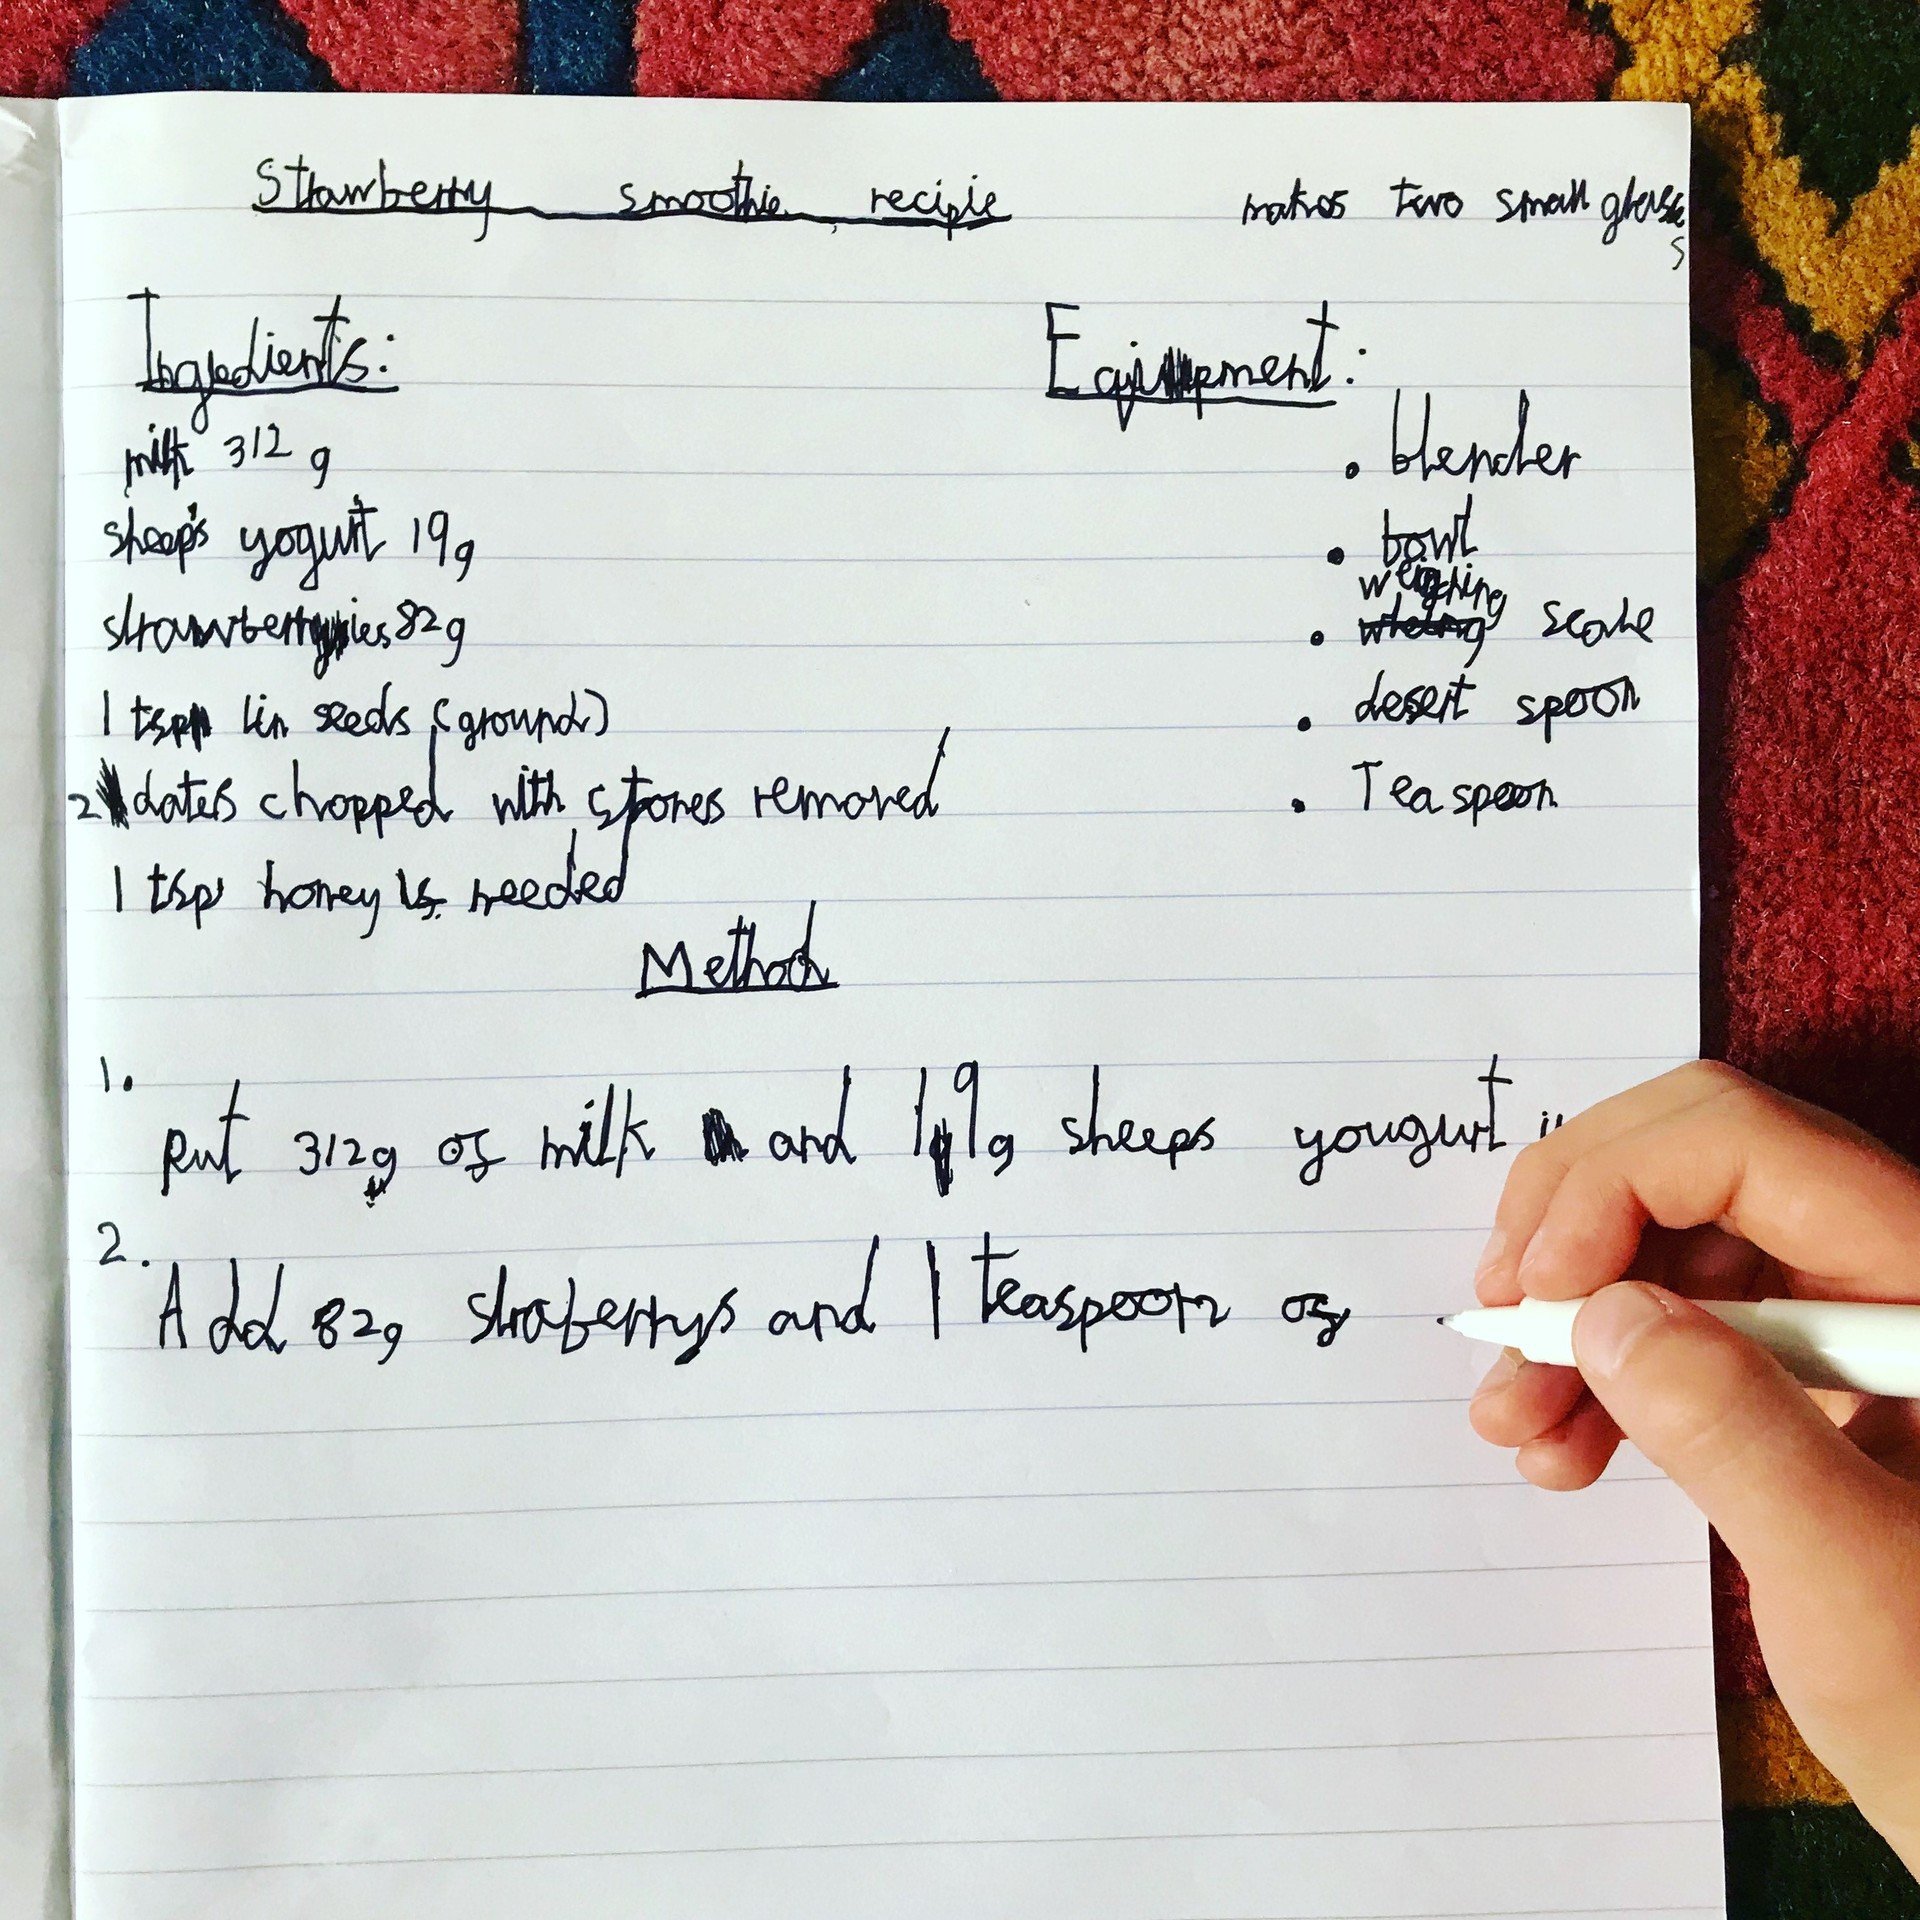 Strawberry smoothie recipie
makes two small glasses
Ingredients:
milk 312 g
sheep's yogurt 19g
strawberries 82g
1 tsp lin seeds (ground)
2 dates chopped with stones removed
1 tsp honey is needed
Equipment:
• blender
• bowl
• weighing scale
• desert spoon
• Teaspoon
Method
1.
Put 312g of milk and 19g sheeps yougurt
2.
Add 82g straberrys and 1 teaspoon of